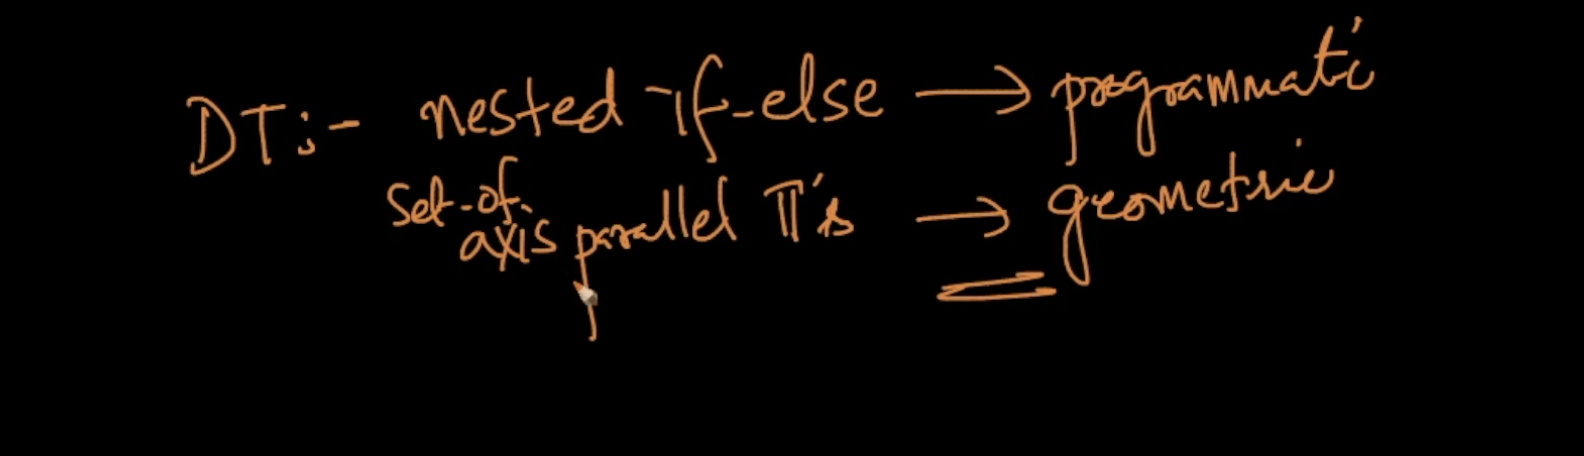 DT:- nested if-else → programmatic
set-of
axis parallel π's → geometric